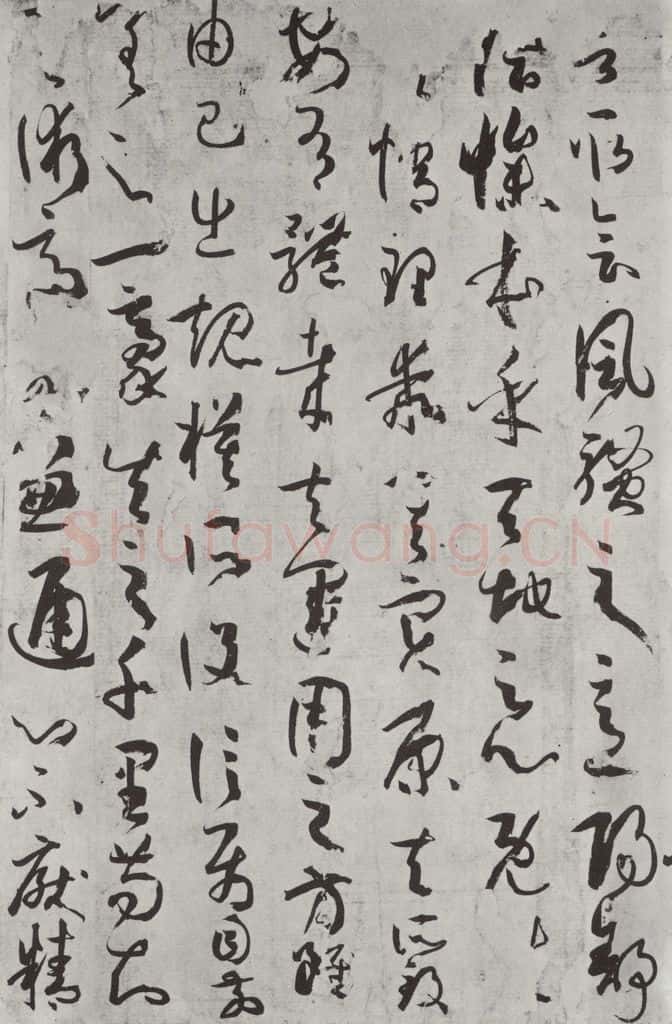 言取會風騷之意陽舒
陰慘本乎天地之心既
其情理乖其實原夫所致
安有體哉夫運用之方雖
由己出規模所設信屬目前
差之一豪失之千里苟知
其術適可兼通心不厭精
Shufawang.CN